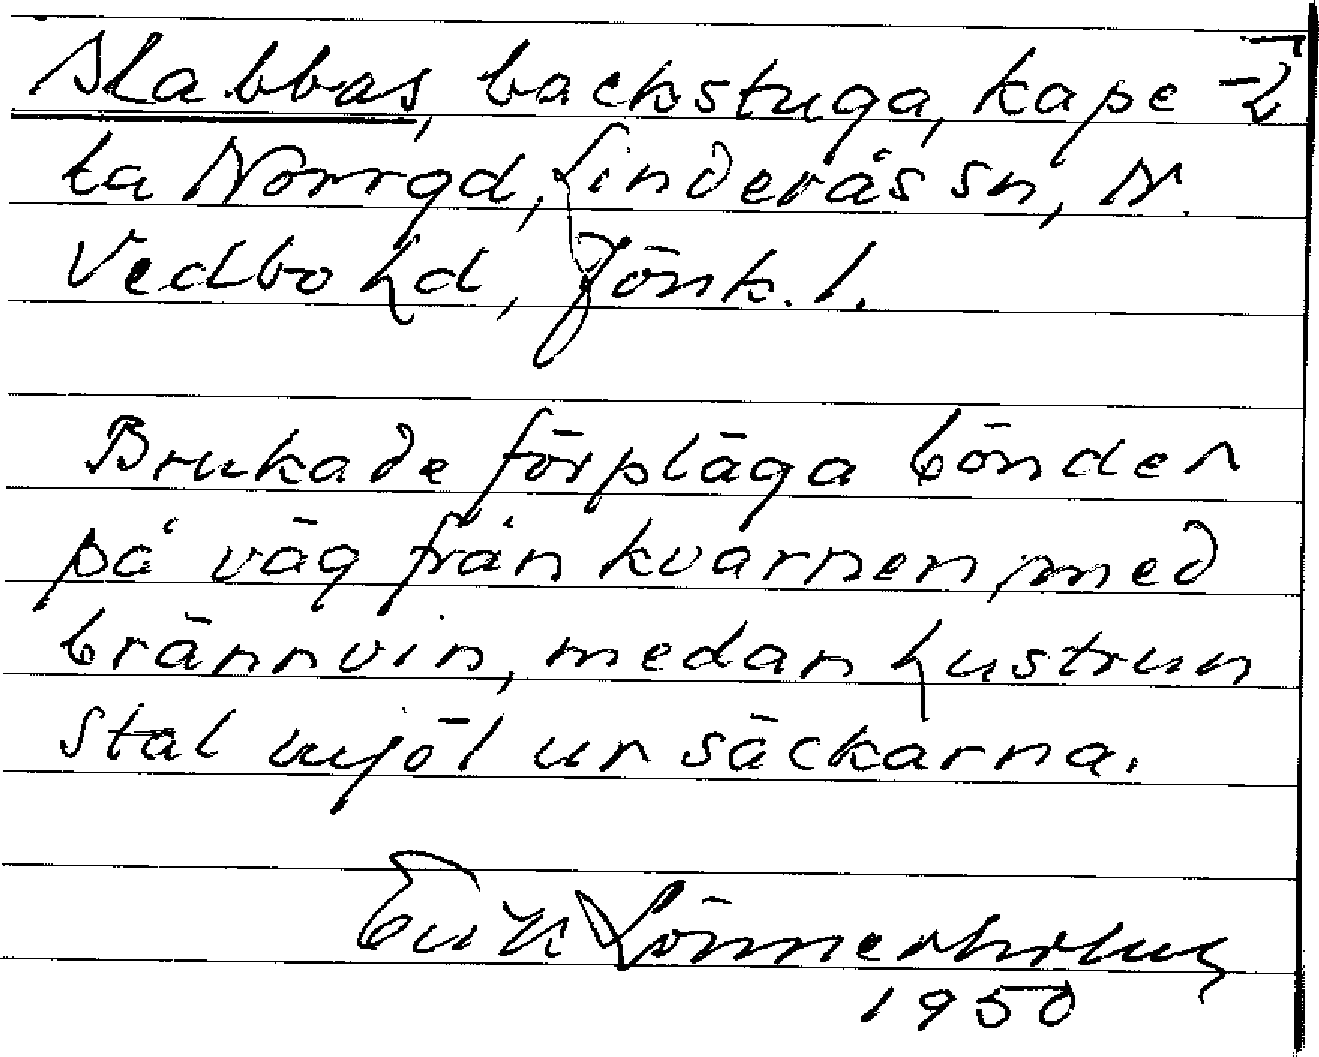 Slabbas, backstuga, kape-
ta Norrgd, Linderås sn, N.
Vedbo hd, Jönk. l.
Brukade förpläga bönder
på väg från kvarnen med
brännvin, medan hustrun
stal mjöl ur säckarna.
Erik Lönnerholm
1950